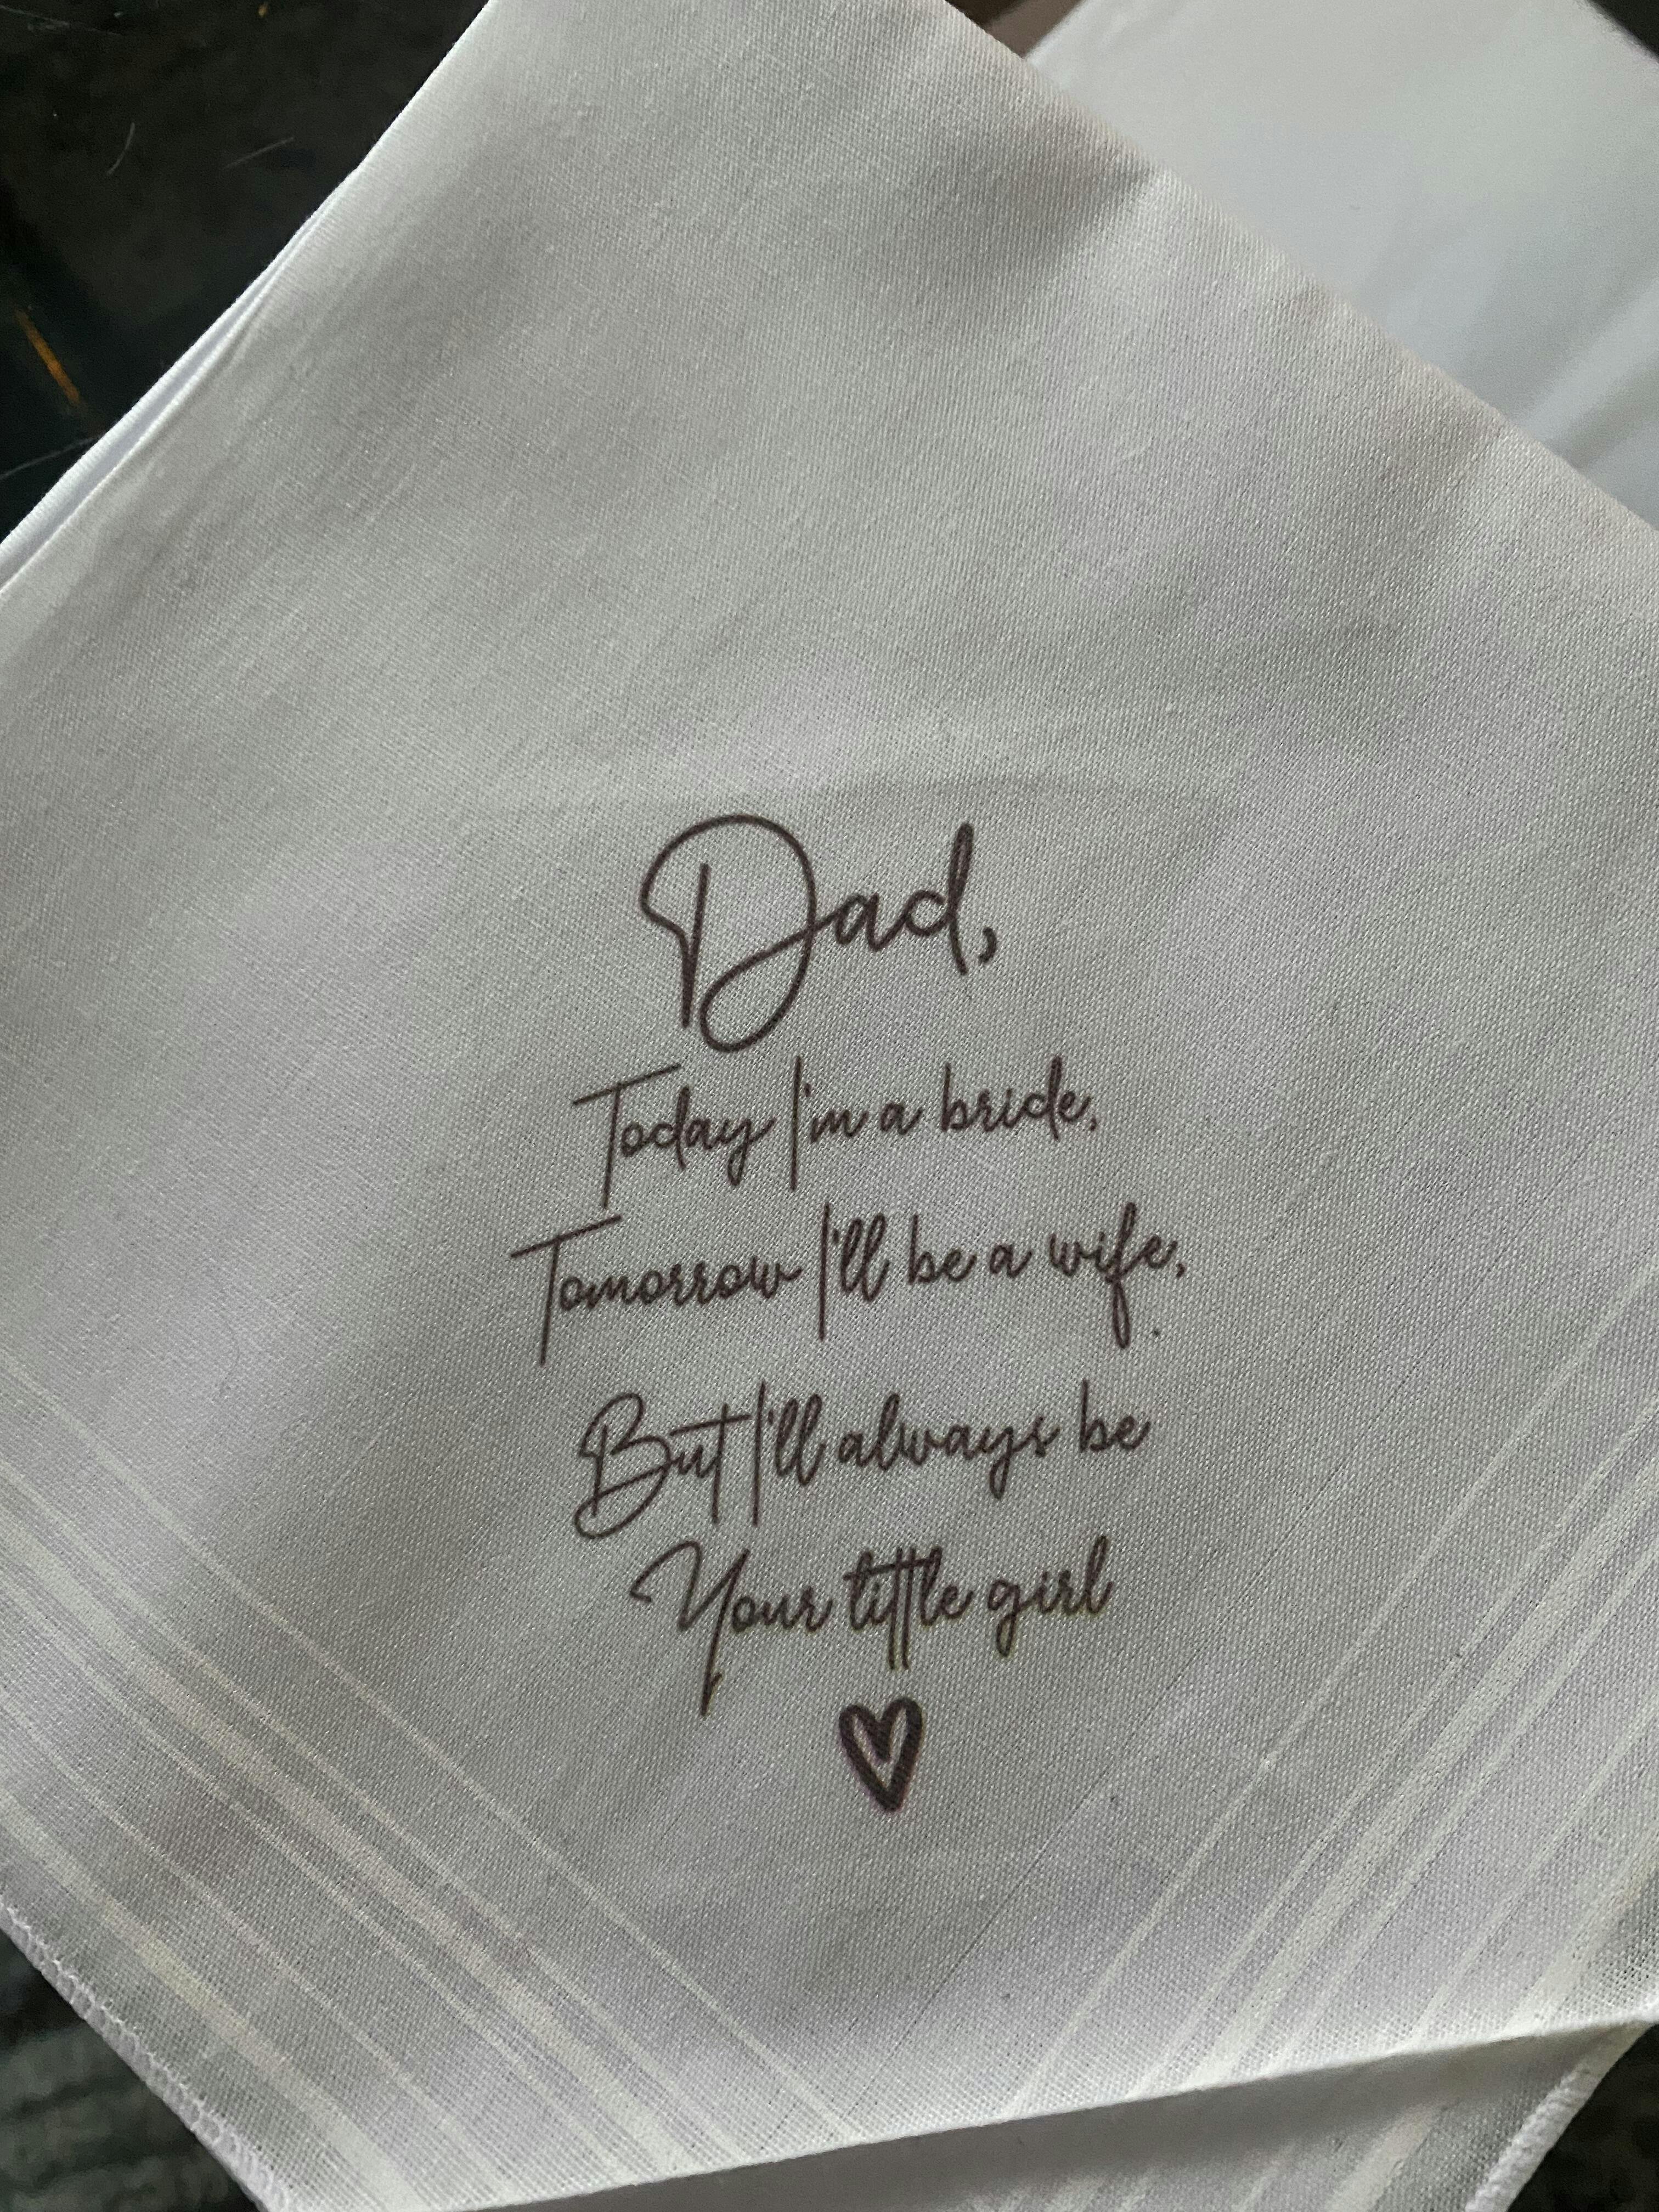 Dad,
Today I'm a bride,
Tomorrow I'll be a wife,
But I'll always be
Your little girl